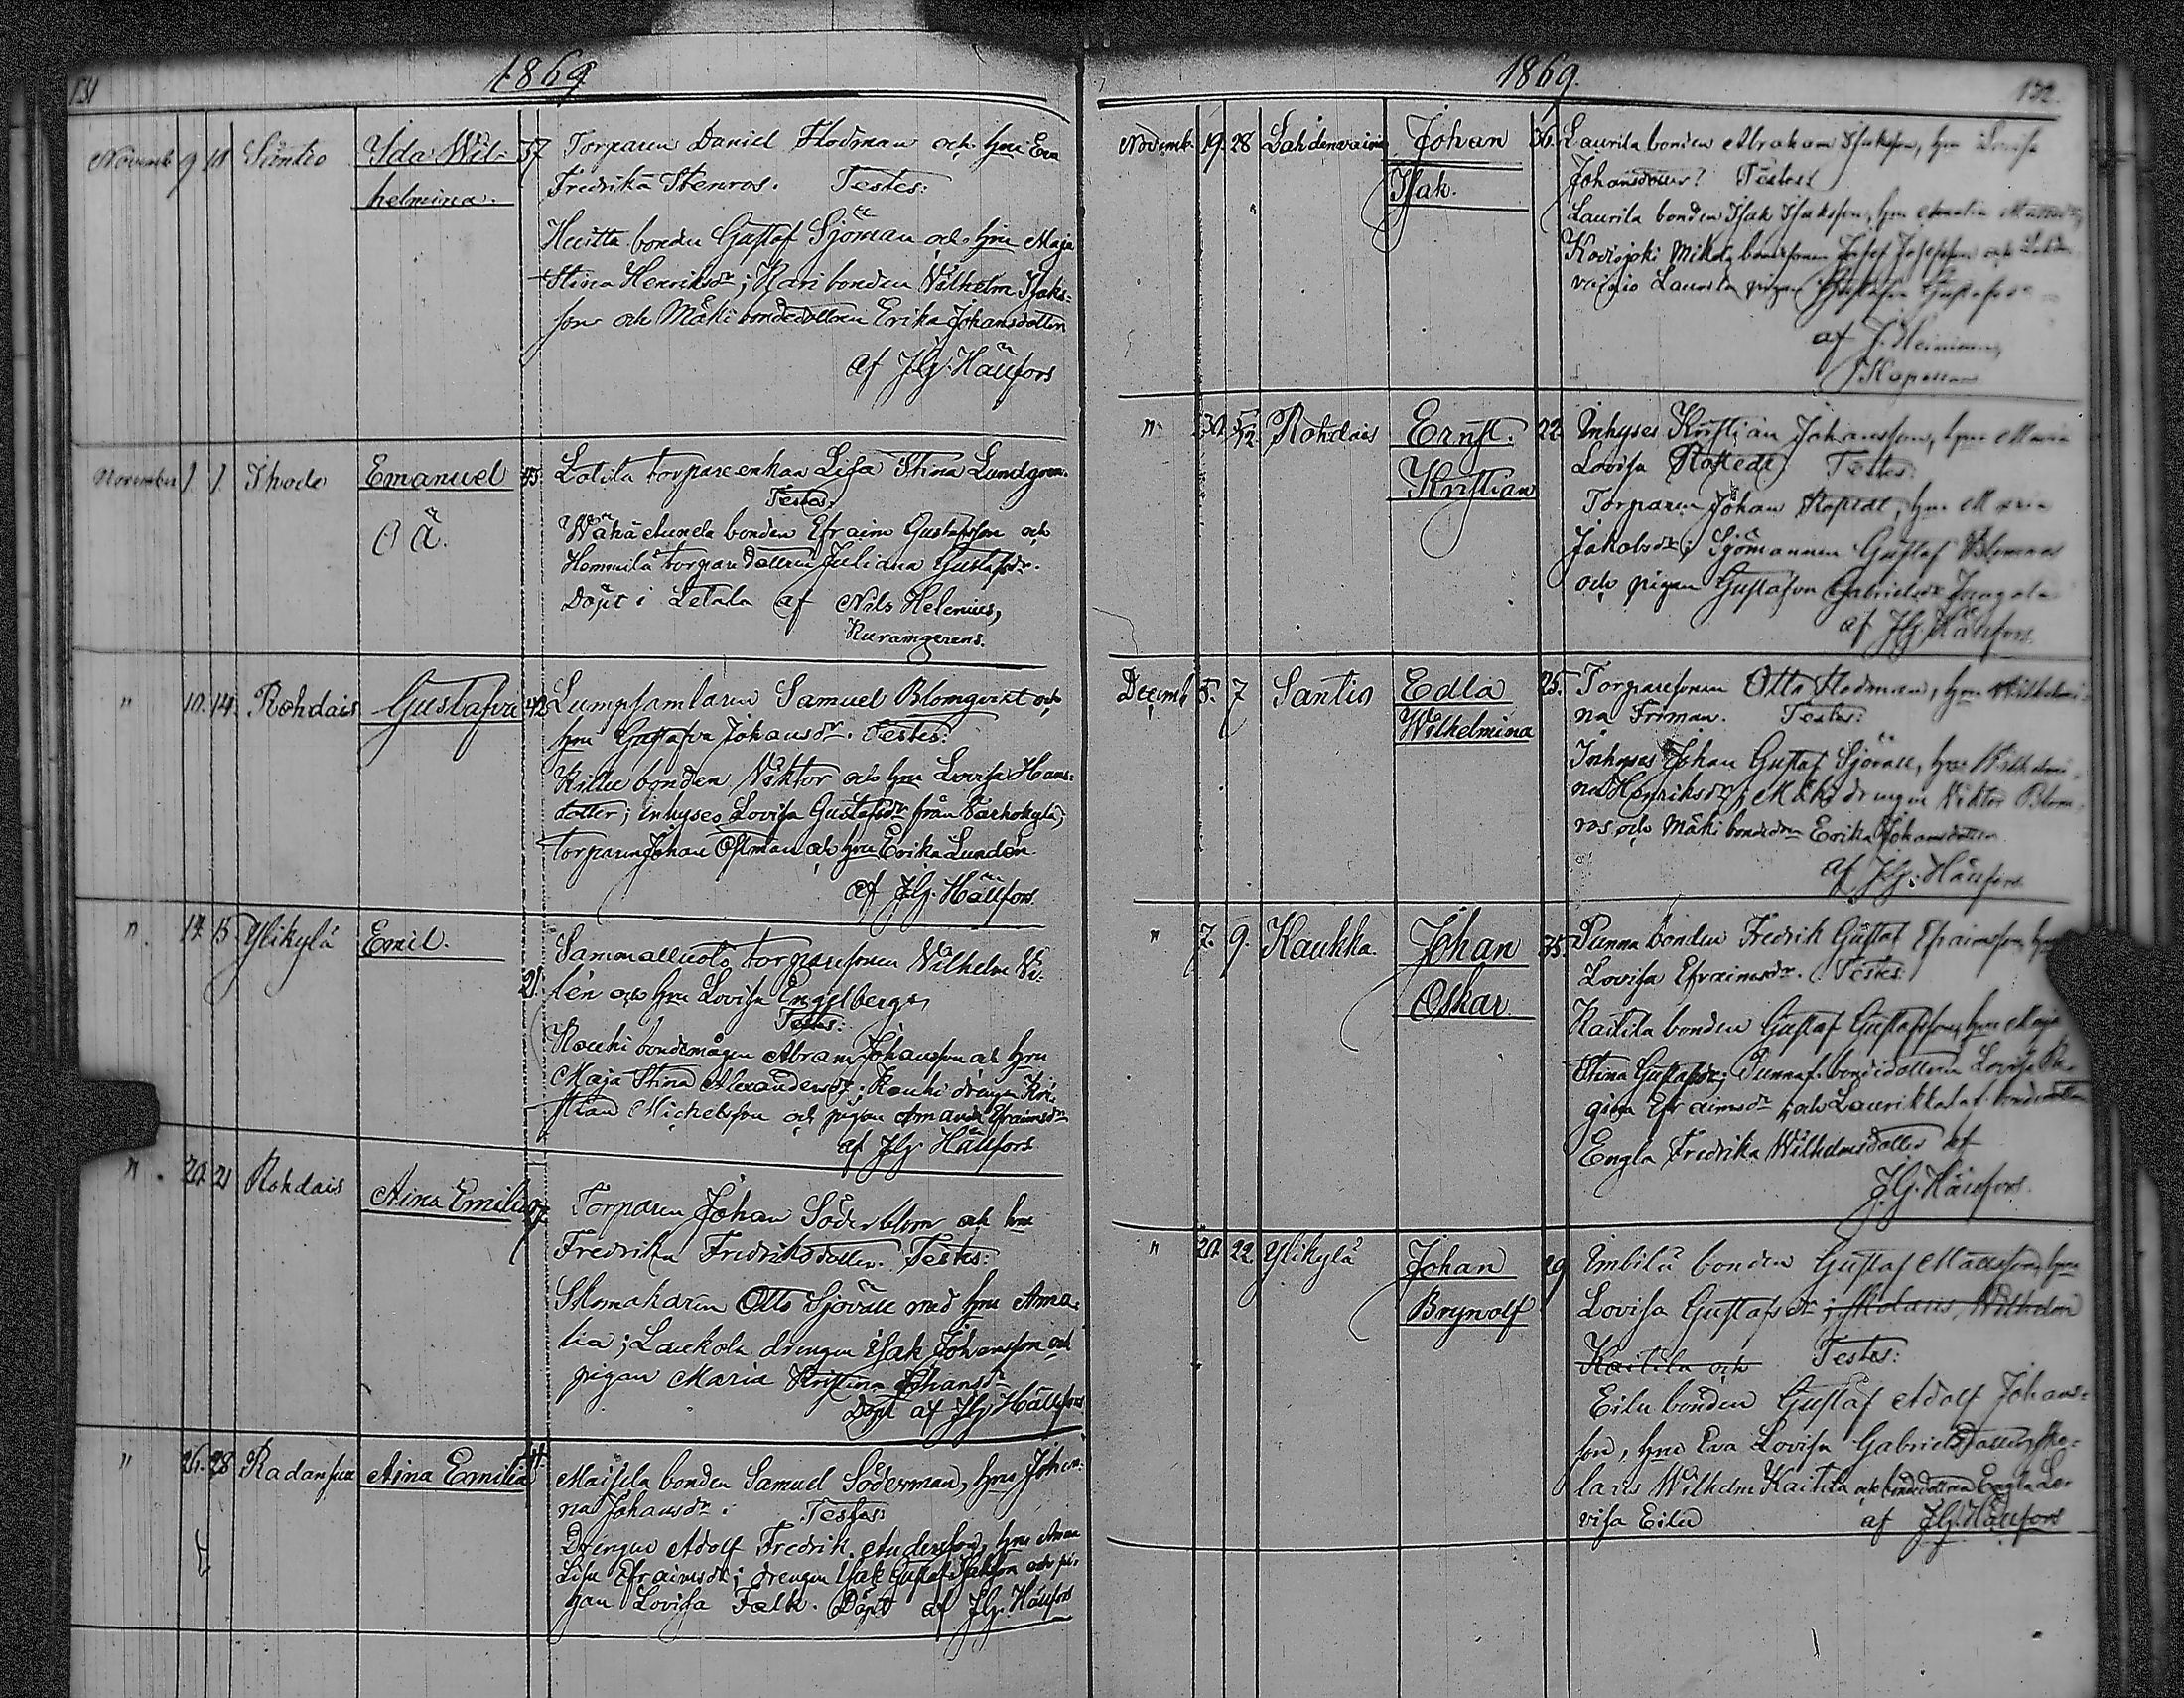 131
1869
Novemb. 9 10 Santio Ida Wil- 37 Torparen Daniel Flodman och hu Eva
helmina. Fredrika Stenros. Testes:
Huitta bonden Gustaf Sjöman och hu Maja
Stina Henriksdr; Kari bonden Wilhelm Isaks-
son och Mäki bondedottren Erika Johansdotter
af J.G. Hällfors
November 1 1 Ihode Emanuel 35. Lotila torpareenkan Lisa Stina Lundgren.
Testes:
O ä. Wähä bonden Efraim Gustafsson och
Hemmilä torparedottren Juliana Gustafsdr.
Döpt i Letala af Nils Helenius,
" 10. 14. Rohdais Gustafva 42 Lumpsamlaren Samuel Blomqvist och
hu Gustafva Johansdr. Testes:
bonden Viktor och hu Lovisa Hans-
dotter; inhyses Lovisa Gustafsdr från Varhokylä;
torparen Johan Östman och hu Erika Lundén
af J.G. Hällfors
" 14. 15 Ylikylä Emil. 21. Sammalluoto torparesonen Wilhelm Vi-
lén och hu Lovisa Engelberg.
Testes:
Kouki bondemågen Abram Johansson och hu
Maja Stina Alexandersdr; Kouki drengen Kri-
stian Michelsson och pigan Amanda Efraimsdr
af J.G. Hällfors
" 20. 21 Rohdais Aina Emilia Torparen Johan Söderblom och hu
Fredrika Fredriksdotter. Testes:
Skomakaren Otto Sjövall med hu Ama-
lia; Laukola drengen Isak Johansson och
pigan Maria Kristina Johansdr
Döpt af J.G. Hällfors
" 26. 28 Radansuu Aina Emilia Maisela bonden Samuel Söderman, hu Johan-
na Johansdr. Testes:
Drengen Adolf Fredrik Andersson, hu Anna
Lisa Efraimsdr; drengen Isak Gustaf Isaksson och pi-
gan Lovisa Falk. Döpt af J.G. Hällfors
1869.
132.
Novemb. 19. 28 Lahdenvainio Johan 36. Laurila bonden Abraham Isaksson, hu Lovisa
Isak. Johansdotter? Testes:
Laurila bonden Isak Isaksson, hu Amalia
Kodisjoki Mikola bondesonen Josef Josefsson och Lahden
vainio Laurila pigan Gustafva Gustafsdr
af J. Heininen,
Kapellan
" 30. 5/12 Rohdais Ernst. 22. Inhyses Kristian Johansson, hu Maria
Kristian Lovisa Rostedt. Testes:
Torparen Johan Rostedt, hu Maria
Jakobsdr; Sjömannen Gustaf Blomros
och pigan Gustafva Gabrielsdr
af J.G. Hällfors.
Decemb. 5. 7 Santio Edla 25. Torparesonen Otto Flodman, hu Wilhelmi-
Wilhelmina na Friman. Testes:
Inhyses Johan Gustaf Sjövall, hu Wilhelmi-
na Henriksdr; Mäki drengen Viktor Blom-
ros och Mäki bondedrn Erika Johansdotter
af J.G. Hällfors
" 7. 9. Kaukka. Johan 35. Punna bonden Fredrik Gustaf Efraimsson, hu
Oskar. Lovisa Efraimsdr. Testes:
Kaitila bonden Gustaf Gustafsson, hu Maja
Stina Gustafsdr; Punna bondedottren Lovisa Re-
gina Efraimsdr och Laurikkala bondedottren
Engla Fredrika Wilhelmsdotter af
J.G. Hällfors.
" 20. 22 Ylikylä Johan 29 Imbilä bonden Gustaf Mattsson, hu
Brynolf Lovisa Gustafsdr; skolaris Wilhelm
Kaitila och Testes:
Eilu bonden Gustaf Adolf Johans-
son, hu Eva Lovisa Gabrielsdotter; sko-
laris Wilhelm Kaitila och bondedottren Engla Lo-
visa Eilu af J.G. Hällfors